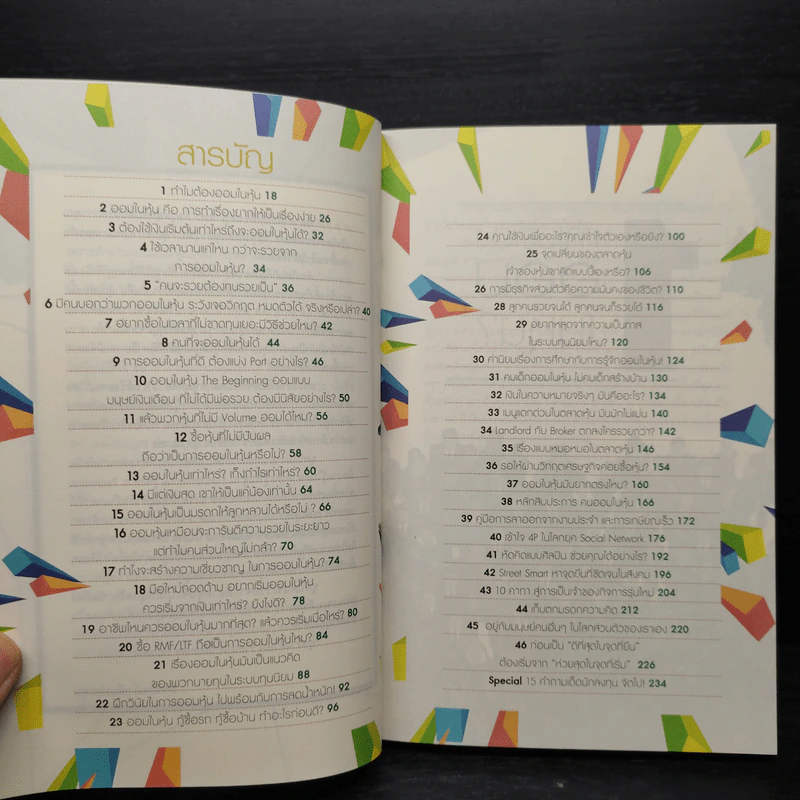 สารบัญ
1 ทำไมต้องออมในหุ้น 18
2 ออมในหุ้น คือ การทำเรื่องยากให้เป็นเรื่องง่าย 26
3 ต้องใช้เงินเริ่มต้นเท่าไหร่ถึงจะออมในหุ้นได้? 32
4 ใช้เวลานานแค่ไหน กว่าจะรวยจาก
การออมในหุ้น? 34
5 "คนจะรวยต้องทนรวยเป็น" 36
6 มีคนบอกว่าพวกออมในหุ้น ระวังเจอวิกฤต หมดตัวได้ จริงหรือเปล่า? 40
7 อยากซื้อในเวลาที่ไม่ขาดทุนเยอะมีวิธีช่วยไหม? 42
8 คนที่จะออมในหุ้นได้ 44
9 การออมในหุ้นที่ดี ต้องแบ่ง Port อย่างไร? 46
10 ออมในหุ้น The Beginning ออมแบบ
มนุษย์เงินเดือน ที่ไม่ได้มีพ่อรวย ต้องมีนิสัยอย่างไร? 50
11 แล้วพวกหุ้นที่ไม่มี Volume ออมได้ไหม? 56
12 ซื้อหุ้นที่ไม่มีปันผล
ถือว่าเป็นการออมในหุ้นหรือไม่? 58
13 ออมในหุ้นเท่าไหร่? เก็งกำไรเท่าไหร่? 60
14 มีแต่เงินสด เขาให้เป็นแค่น้องเท่านั้น 64
15 ออมในหุ้นเป็นมรดกให้ลูกหลานได้หรือไม่ ? 66
16 ออมในหุ้นเหมือนจะการันตีความรวยในระยะยาว
แต่ทำไมคนส่วนใหญ่ไม่กล้า? 70
17 ทำไงจะสร้างความเชี่ยวชาญ ในการออมในหุ้น? 74
18 มือใหม่ถอดด้าม อยากเริ่มออมในหุ้น
ควรเริ่มจากเงินเท่าไหร่? ยังไงดี? 78
19 อาชีพไหนควรออมในหุ้นมากที่สุด? แล้วควรเริ่มเมื่อไหร่? 80
20 ซื้อ RMF/LTF ถือเป็นการออมในหุ้นไหม? 84
21 เรื่องออมในหุ้นมันเป็นแนวคิด
ของพวกนายทุนในระบบทุนนิยม 88
22 ฝึกวินัยในการออมหุ้น ไปพร้อมกับการลดน้ำหนัก! 92
23 ออมในหุ้น กู้ซื้อรถ กู้ซื้อบ้าน ทำอะไรก่อนดี? 96
24 คุณใช้เงินเพื่ออะไร?คุณเข้าใจตัวเองหรือยัง? 100
25 จุดเปลี่ยนของตลาดหุ้น
เจ้าของหุ้นเขาคิดแบบนี้เองหรือ? 106
26 การมีธุรกิจส่วนตัวคือความมั่นคงของชีวิต? 110
28 ลูกคนรวยจนได้ ลูกคนจนก็รวยได้ 116
29 อยากหลุดจากความเป็นทาส
ในระบบทุนนิยมไหม? 120
30 ค่านิยมเรื่องการศึกษากับการรู้จักออมในหุ้น! 124
31 คนเด็กออมในหุ้น ไม่คนเด็กสร้างบ้าน 130
32 เงินในความหมายจริงๆ มันคืออะไร? 134
33 เมนูแดกด่วนในตลาดหุ้น มันมักไม่แน่น 140
34 Landlord กับ Broker ตกลงใครรวยกว่า? 142
35 เรื่องแบบหมอหมอในตลาดหุ้น 146
36 รอให้ผ่านวิกฤตเศรษฐกิจค่อยซื้อหุ้น? 154
37 ออมในหุ้นมันยากตรงไหน? 160
38 หลักสิบประการ คนออมในหุ้น 166
39 คู่มือการลาออกจากงานประจำ และการเกษียณเร็ว 172
40 เข้าใจ 4P ในโลกยุค Social Network 176
41 หัดคิดแบบศิลปิน ช่วยคุณได้อย่างไร? 192
42 Street Smart หาจุดยืนที่ชัดเจนในสังคม 196
43 10 คาถา สู่การเป็นเจ้าของกิจการรุ่นใหม่ 204
44 เก็บตกมรดกความคิด 212
45 อยู่กับมนุษย์คนอื่นๆ ในโลกส่วนตัวของเราเอง 220
46 ก่อนเป็น "ดีที่สุดในจุดที่ยืน"
ต้องเริ่มจาก "ห่วยสุดในจุดที่เริ่ม" 226
Special 15 คำถามเด็ดนักลงทุน จัดไป! 234